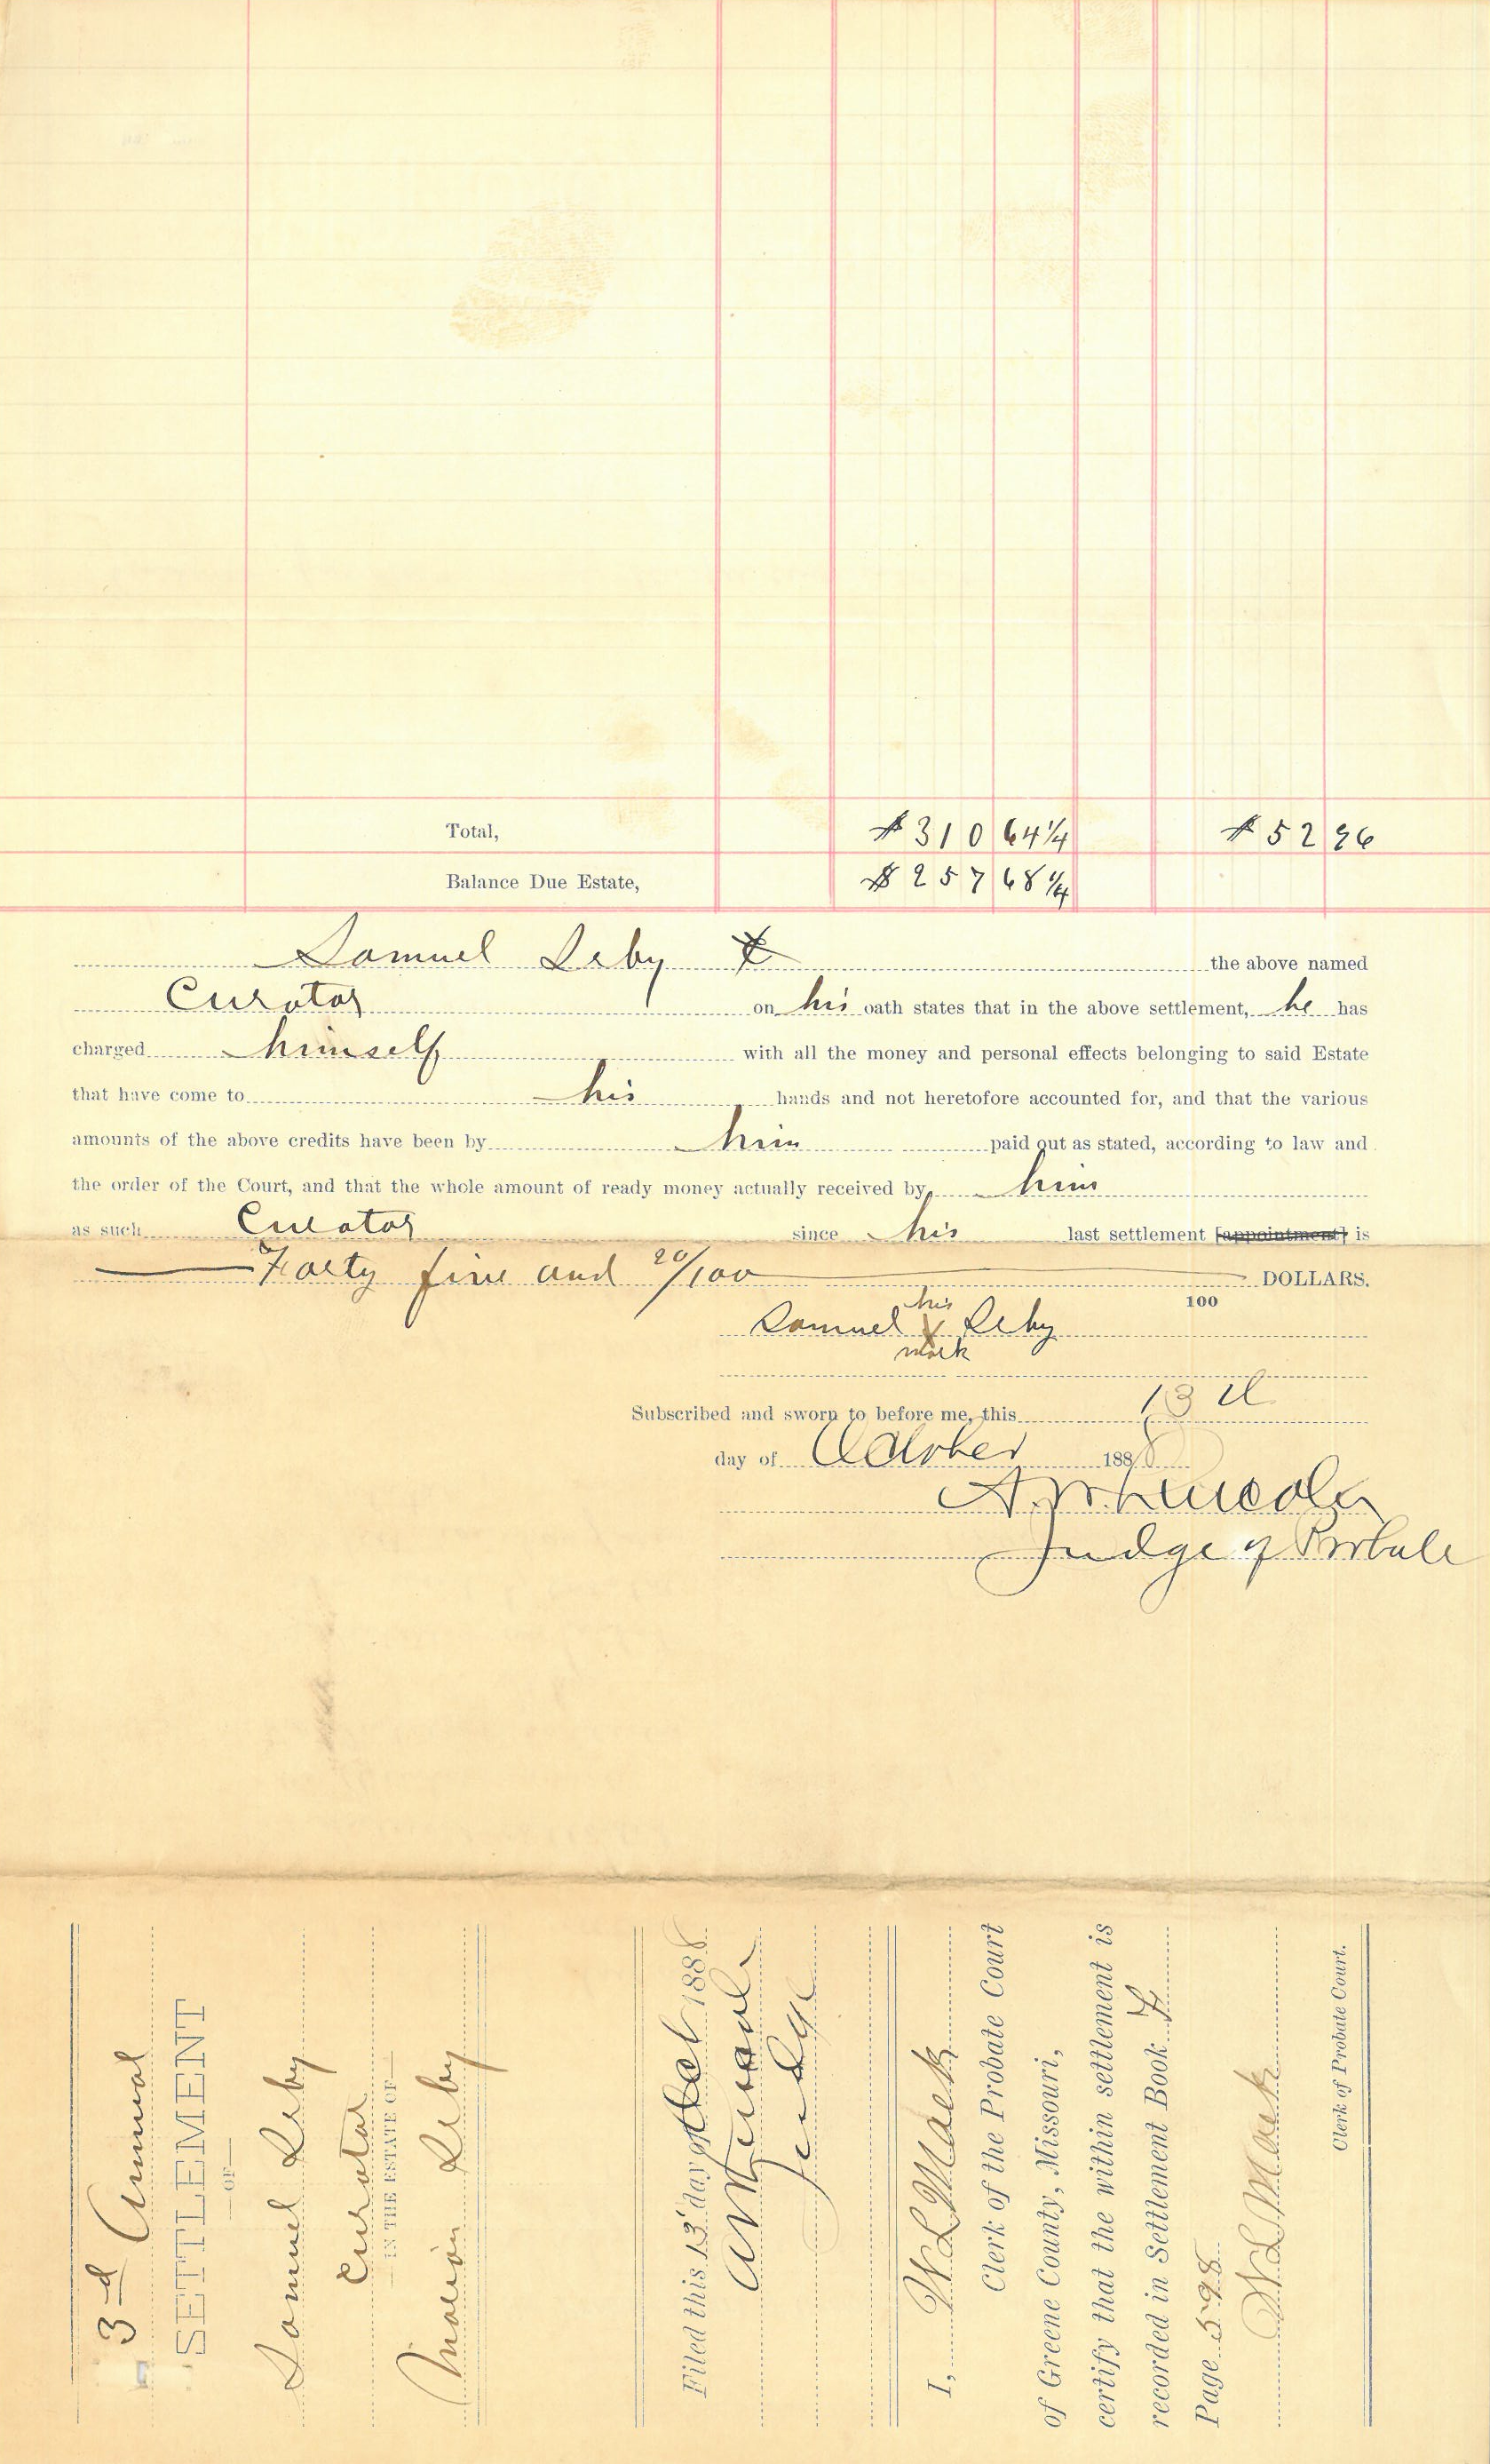 Total, $310 64¼ $52 96
Balance Due Estate, $257 68¼
Samuel Leby the above named
Curator on his oath states that in the above settlement, he has
charged himself with all the money and personal effects belonging to said Estate
that have come to his hands and not heretofore accounted for, and that the various
amounts of the above credits have been by him paid out as stated, according to law and
the order of the Court, and that the whole amount of ready money actually received by him
as such Curator since his last settlement [appointment] is
Forty five and 20/100 DOLLARS.
100
his
Samuel X Leby
mark
Subscribed and sworn to before me, this 13th
day of October 1888
A.W. Lincoln
Judge of Probate
3-d Annual
SETTLEMENT
—OF—
Samuel Leby
Curator
—IN THE ESTATE OF—
Marion Leby
Filed this 13 day of Oct 1888
AW Lincoln
Judge
I, W L Mack
Clerk of the Probate Court
of Greene County, Missouri,
certify that the within settlement is
recorded in Settlement Book F
Page 598
W L Mack
Clerk of Probate Court.